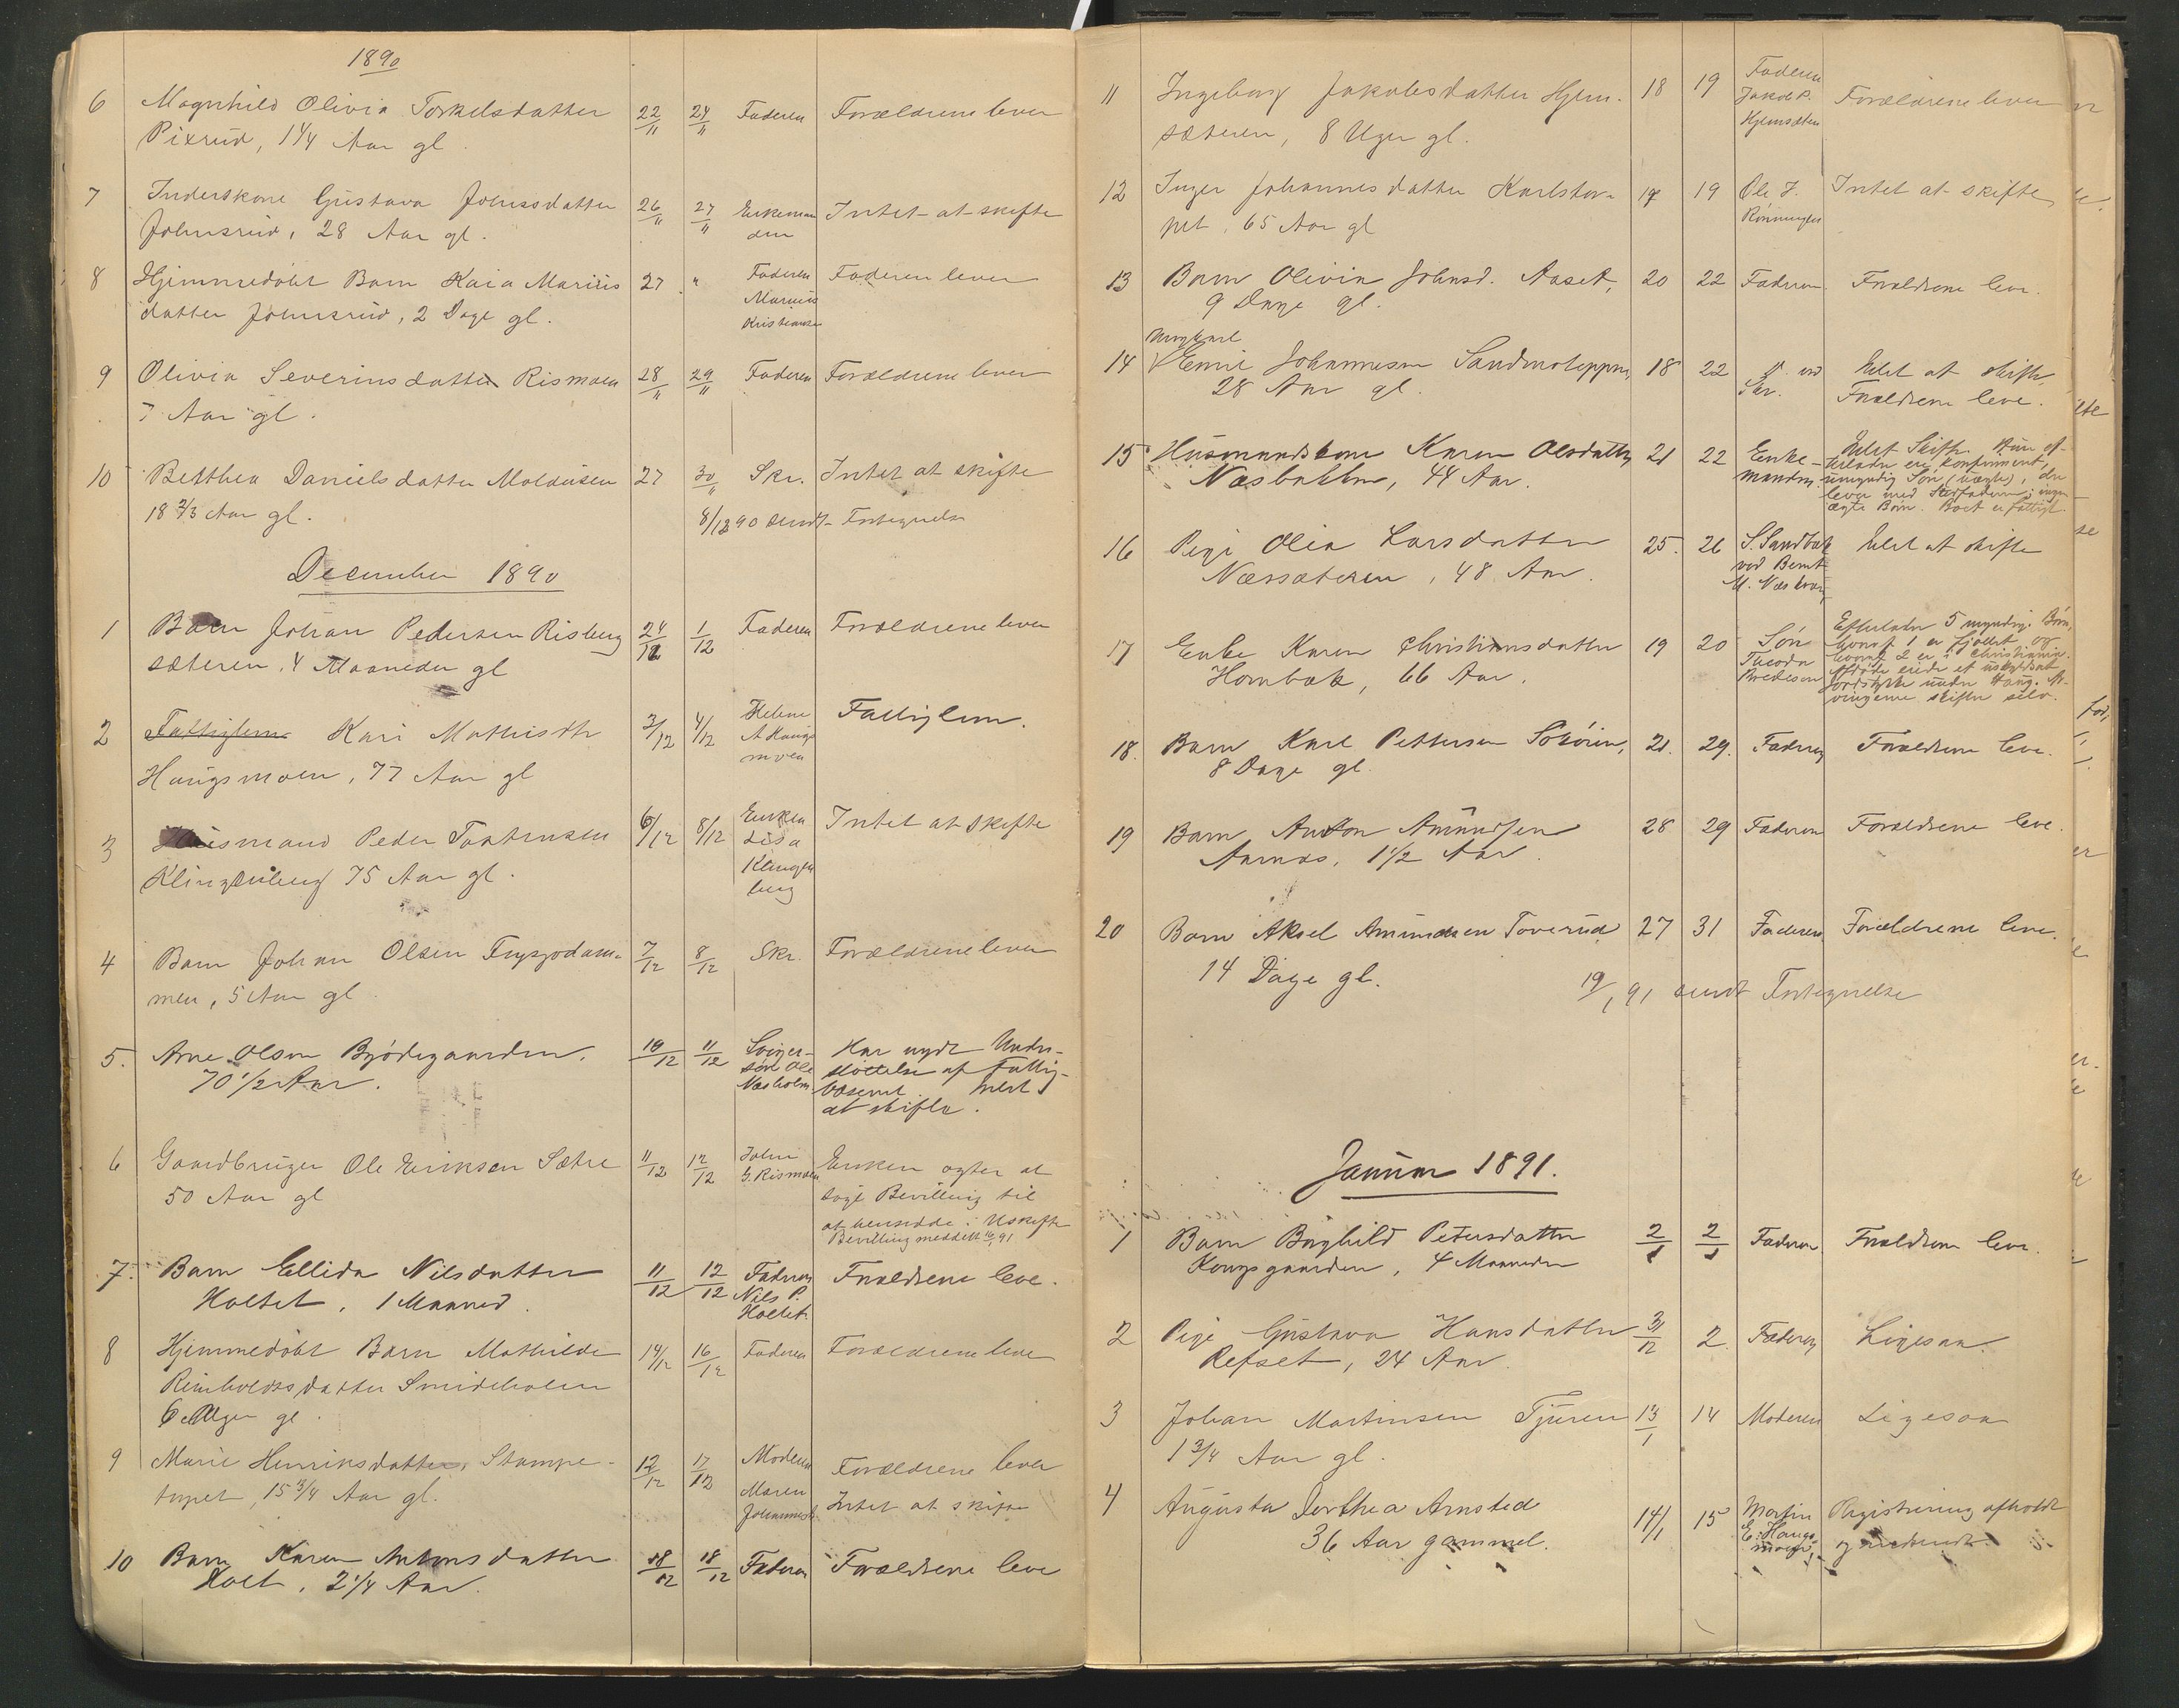 1890
6 Magnhild Olivia Torkelsdatter 22/11 24/11 Faderen Forældrene lever
Pixrud, 1 1/4 Aar gl.
7 Inderstkone Gustava Johnsdatter 26/11 27/11 Enkeman Intet at skifte
Johnsrud, 28 Aar gl. den
8 Hjemmedøbt Barn Kaia Marius 27 " Faderen Faderen lever
datter Johnsrud, 2 Dage gl. Marius
Kristiansen
9 Olivia Severinsdatter Rismoen 28/11 29/11 Faderen Forældrene lever
7 Aar gl.
10 Betthea Danielsdatter Moldusen 27 30/11 Skr. Intet at skifte
18 2/3 Aar gl. 8/12 90 sendt Fortegnelse
December 1890
1 Barn Johan Pedersen Risberg 24/12 1/12 Faderen Forældrene lever
sæteren, 4 Maaneder gl
2 Fattiglem Kari Mathisdtr 3/12 4/12 Helene Fattiglem.
Haugsmoen, 77 Aar gl A Haugs
moen
3 Husmand Peder Torstensen 6/12 8/12 Enken Intet at skifte
Klingenberg 75 Aar gl. Lisa
Klingen
berg
4 Barn Johan Olsen Frysjodam- 7/12 8/12 Skr. Forældrene lever
men, 5 Aar gl
5. Arne Olsen Brødegaarden. 10/12 11/12 Sviger- Har nydt Under-
70 1/2 Aar. søn Ole støttelse af Fattig-
Næsholm. væsenet. Intet
at skifte.
6 Gaardbruger Ole Eriksen Sætre 11/12 12/12 John Enken agter at
50 Aar gl G. Rismoen søge Bevilling til
at hensidde i Uskifte
Bevilling meddelt 16/1 91
7. Barn Ellida Nilsdatter 11/12 12/12 Faderen Forældrene leve.
Holtet, 1 Maaned. Nils P.
Holtet.
8 Hjemmedøbt Barn Mathilde 14/12 16/12 Faderen Forældrene lever
Reinholdsdatter Smideholen
6 Uger gl.
9 Marie Henriksdatter, Stampe- 12/12 17/12 Moderen Forældrene lever
tupet, 15 3/4 Aar gl. Maren Intet at skifte
Johannesd.
10 Barn Karen Antonsdatter 18/12 18/12 Faderen Forældrene leve
Holt, 2 1/4 Aar.
11 Ingeborg Jakobsdatter Hjem- 18 19 Faderen Forældrene lever
sæteren, 8 Uger gl. Jakob P.
Hjemsæteren
12 Inger Johannesdatter Karlstor- 17 19 Ole J. Intet at skifte
pet, 65 Aar gl Rønningen
13 Barn Olivia Johnsd. Aaset, 20 22 Faderen. Forældrene leve.
9 Dage gl.
Ungkarl
14 Emil Johannesen Sandmoteppen, 18 22 Skr. Intet at skifte
28 Aar gl. Forældrene leve.
15 Husmandskone Karen Olsdatter, 21 22 Enke- Intet Skifte. Kun ef-
Næsbakken, 44 Aar. manden. terlader en konfirmeret,
umyndig Søn (uægte), der
lever med Stedfaderen; ingen
ægte Børn. Boet er fattigt.
16 Pige Olea Larsdatter 25. 26 S. Sandbæk Intet at skifte
Næssæteren, 48 Aar. ved Bernt
M. Næs
17 Enke Karen Christiansdatter 19 20 Søn Efterlader 5 myndige Børn,
Hornbæk, 66 Aar. Theodor hvoraf 1 er fjollet og
Bredesen hvoraf 2 er i Christiania.
Afdøde eiede et uskyldsat
Jordstykke under Haug. Ar-
vingerne skifter selv.
18. Barn Karl Pettersen Sobøren, 21. 29. Faderen Forældrene leve.
8 Dage gl.
19 Barn Anton Amundsen 28 29 Faderen Forældrene leve.
Aarnæs, 1 1/2 Aar.
20 Barn Aksel Amundsen Toverud 27 31 Faderen Forældrene leve.
14 Dage gl. 19/1 91 sendt Fortegnelse
Januar 1891.
1 Barn Borghild Petersdatter 2/1 2/1 Faderen Forældrene leve.
Kongsgaarden, 4 Maaneder
2 Pige Gustava Hansdatter 31/12 2. Faderen Ligesaa.
Refset, 24 Aar.
3 Johan Martinsen Tjuren 13/1 14 Moderen Ligesaa
1 3/4 Aar gl.
4 Augusta Dorthea Arnsted 14/1 15 Martin Registrering afholdt
36 Aar gammel. E. Haugs-
moen